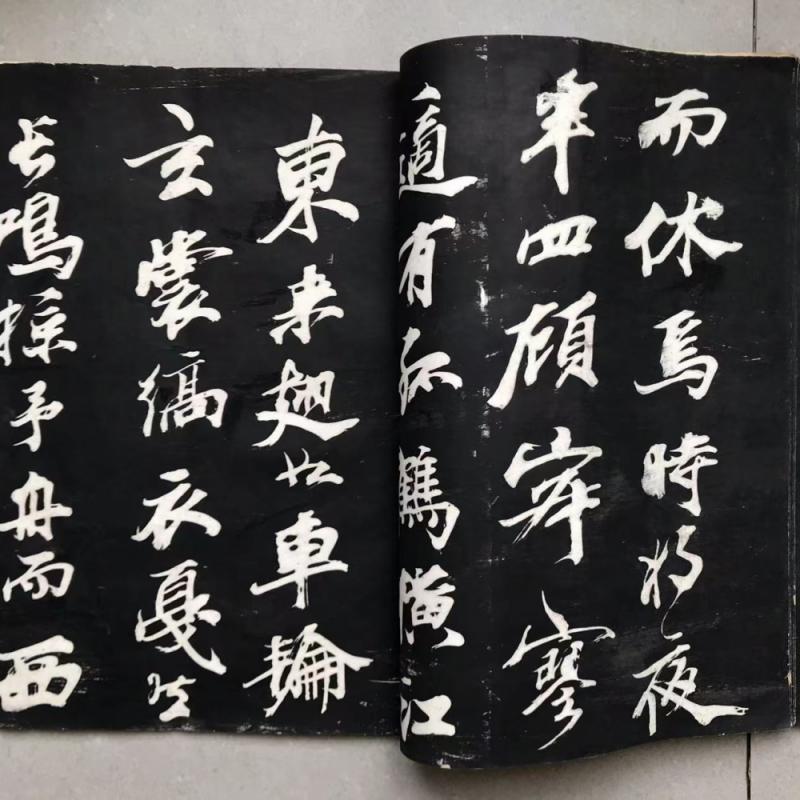 而休焉時将夜
半四顧寂寥
適有孤鶴横江
東来翅如車輪
玄裳縞衣戛然
長鳴掠予舟而西